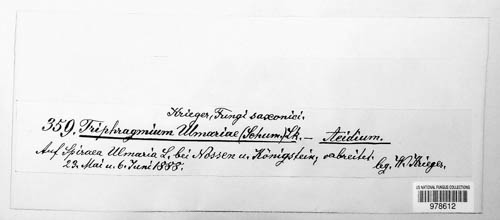 Krieger, Fungi saxonici.
359. Triphragmium Ulmariae (Schum.) Lk. — Aecidium.
Auf Spiraea Ulmaria L. bei Nossen u. Königstein, verbreitet.
23. Mai u. 6. Juni 1888. lg. W. Krieger.
US NATIONAL FUNGUS COLLECTIONS
978612